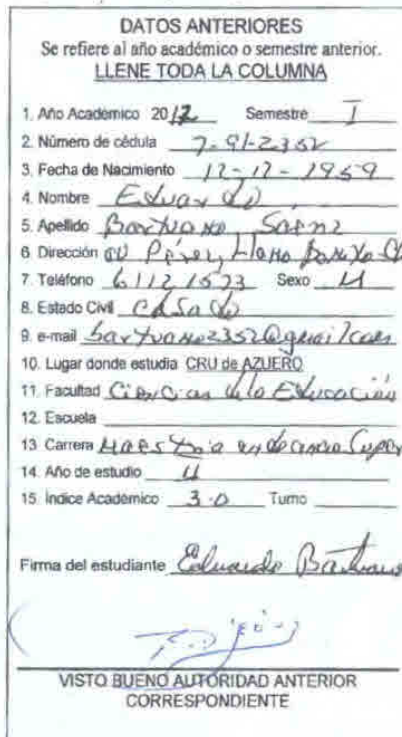 DATOS ANTERIORES
Se refiere al año académico o semestre anterior.
LLENE TODA LA COLUMNA
1. Año Académico 2012 Semestre I
2. Número de cédula 7-91-2352
3. Fecha de Nacimiento 12-12-1959
4. Nombre Eduardo
5. Apellido Bartuano Saenz
6 Dirección Pérez, Llano Bonito
7. Teléfono 61121573 Sexo M
8. Estado Civil Casado
9. e-mail bartuano2352@gmail.com
10. Lugar donde estudia CRU de AZUERO
11. Facultad Ciencias de la Educación
12. Escuela
13 Carrera Maestria en docencia Super
14. Año de estudio
15. Índice Académico 3.0 Turno
Firma del estudiante Eduardo Bartuano
VISTO BUENO AUTORIDAD ANTERIOR
CORRESPONDIENTE